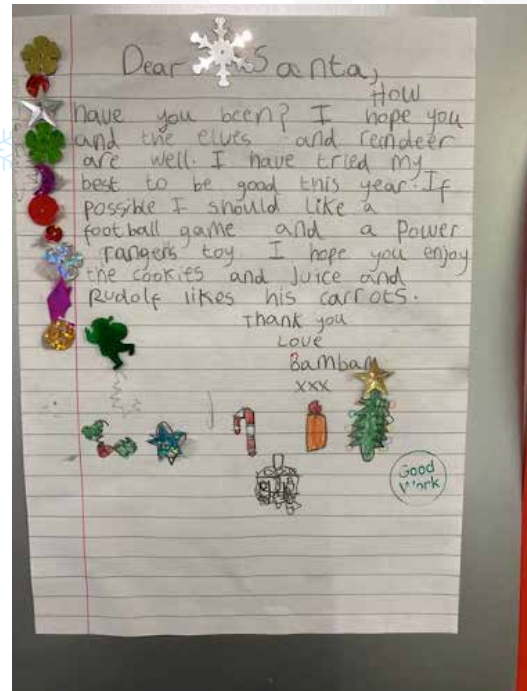 Dear Santa,
How
have you been? I hope you
and the elves and reindeer
are well. I have tried my
best to be good this year. If
possible I should like a
football game and a power
rangers toy. I hope you enjoy
the cookies and Juice and
Rudolf likes his carrots.
Thank you
Love
Bambam
xxx
Good
Work